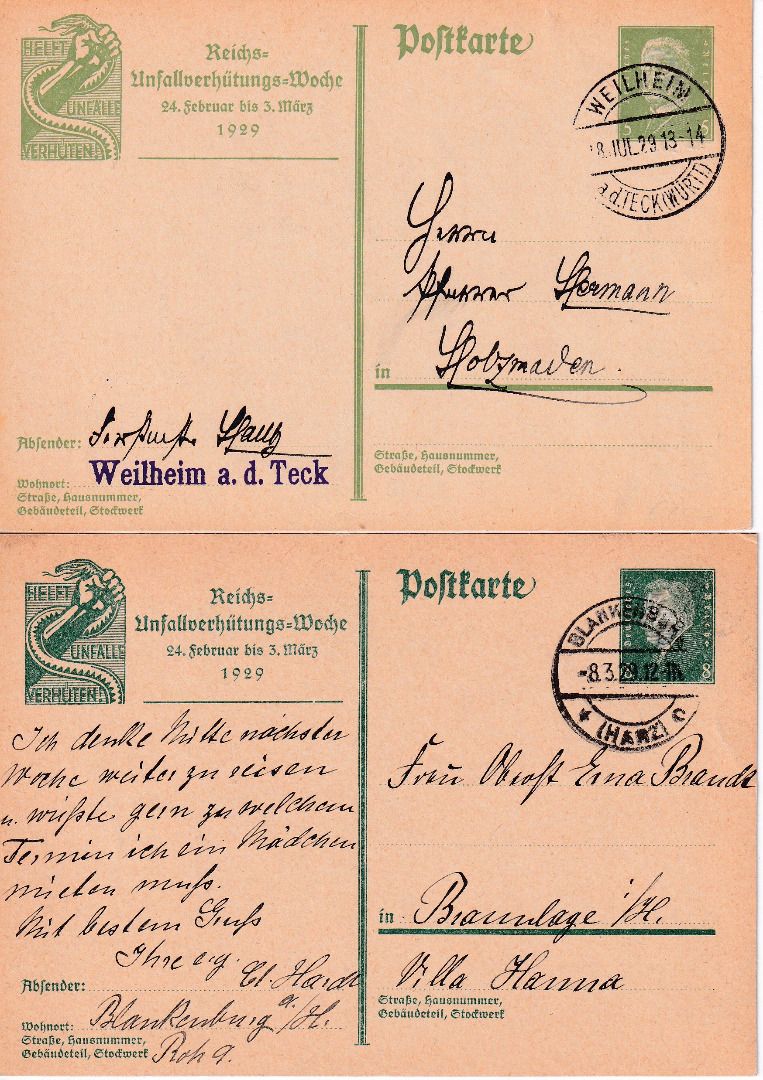 HELFT
UNFÄLLE
VERHÜTEN!
Reichs-
Unfallverhütungs-Woche
24. Februar bis 3. März
1929
Postkarte
5 5
WEILHEIM
8.JUL.29 13-14
a.d.TECK(WÜRTT)
Herrn
Pfarrer Hermann
in Holzmaden.
Absender:
Weilheim a. d. Teck
Wohnort:
Straße, Hausnummer,
Gebäudeteil, Stockwerk
Straße, Hausnummer,
Gebäudeteil, Stockwerk
HELFT
UNFÄLLE
VERHÜTEN!
Reichs-
Unfallverhütungs-Woche
24. Februar bis 3. März
1929
Postkarte
8
BLANKENBURG
-8.3.29.12-1N.
* (HARZ) c
Ich denke Mitte nächster
Woche weiter zu reisen
u. wüßte gern zu welchem
Termin ich ein Mädchen
mieten muß.
Mit bestem Gruß
Ihre erg.
Absender: Cl. Hardt
Wohnort: Blankenburg a/H.
Straße, Hausnummer,
Gebäudeteil, Stockwerk
Frau Oberst Erna Brandt
in Braunlage i/H.
Villa Hanna
Straße, Hausnummer,
Gebäudeteil, Stockwerk